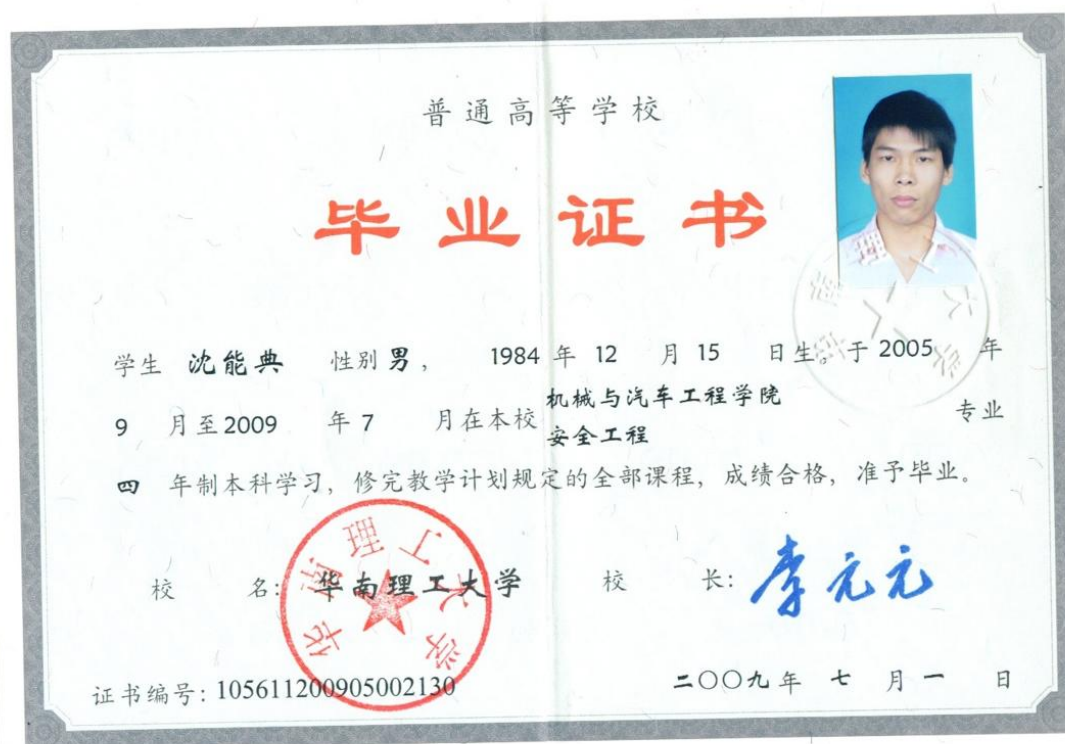 普通高等学校
毕业证书
学生 沈能典 性别 男， 1984 年 12 月 15 日生，于 2005 年
9 月至 2009 年 7 月在本校 机械与汽车工程学院 安全工程 专业
四 年制本科学习，修完教学计划规定的全部课程，成绩合格，准予毕业。
校 名： 华南理工大学 校 长： 李元元
华南理工大学
证书编号：105611200905002130 二〇〇九 年 七 月 一 日